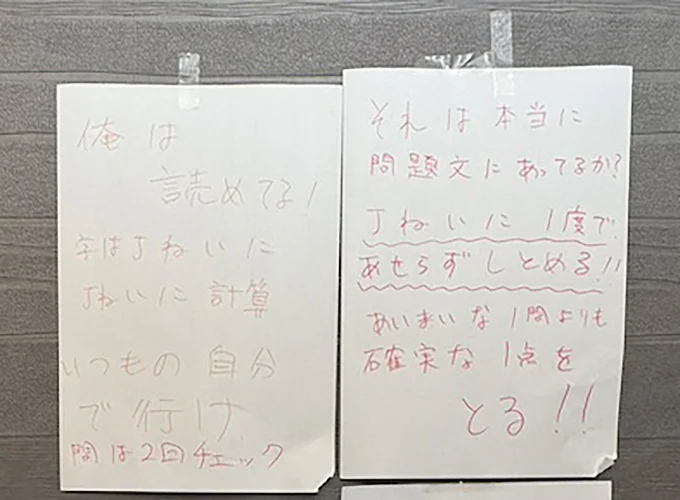 俺は
読めてる!
字はTねいに
Tねいに計算
いつもの自分
で行け
問は2回チェック
それは本当に
問題文にあってるか?
Tねいに1度で
あせらずしとめる!!
あいまいな1問よりも
確実な1点を
とる!!